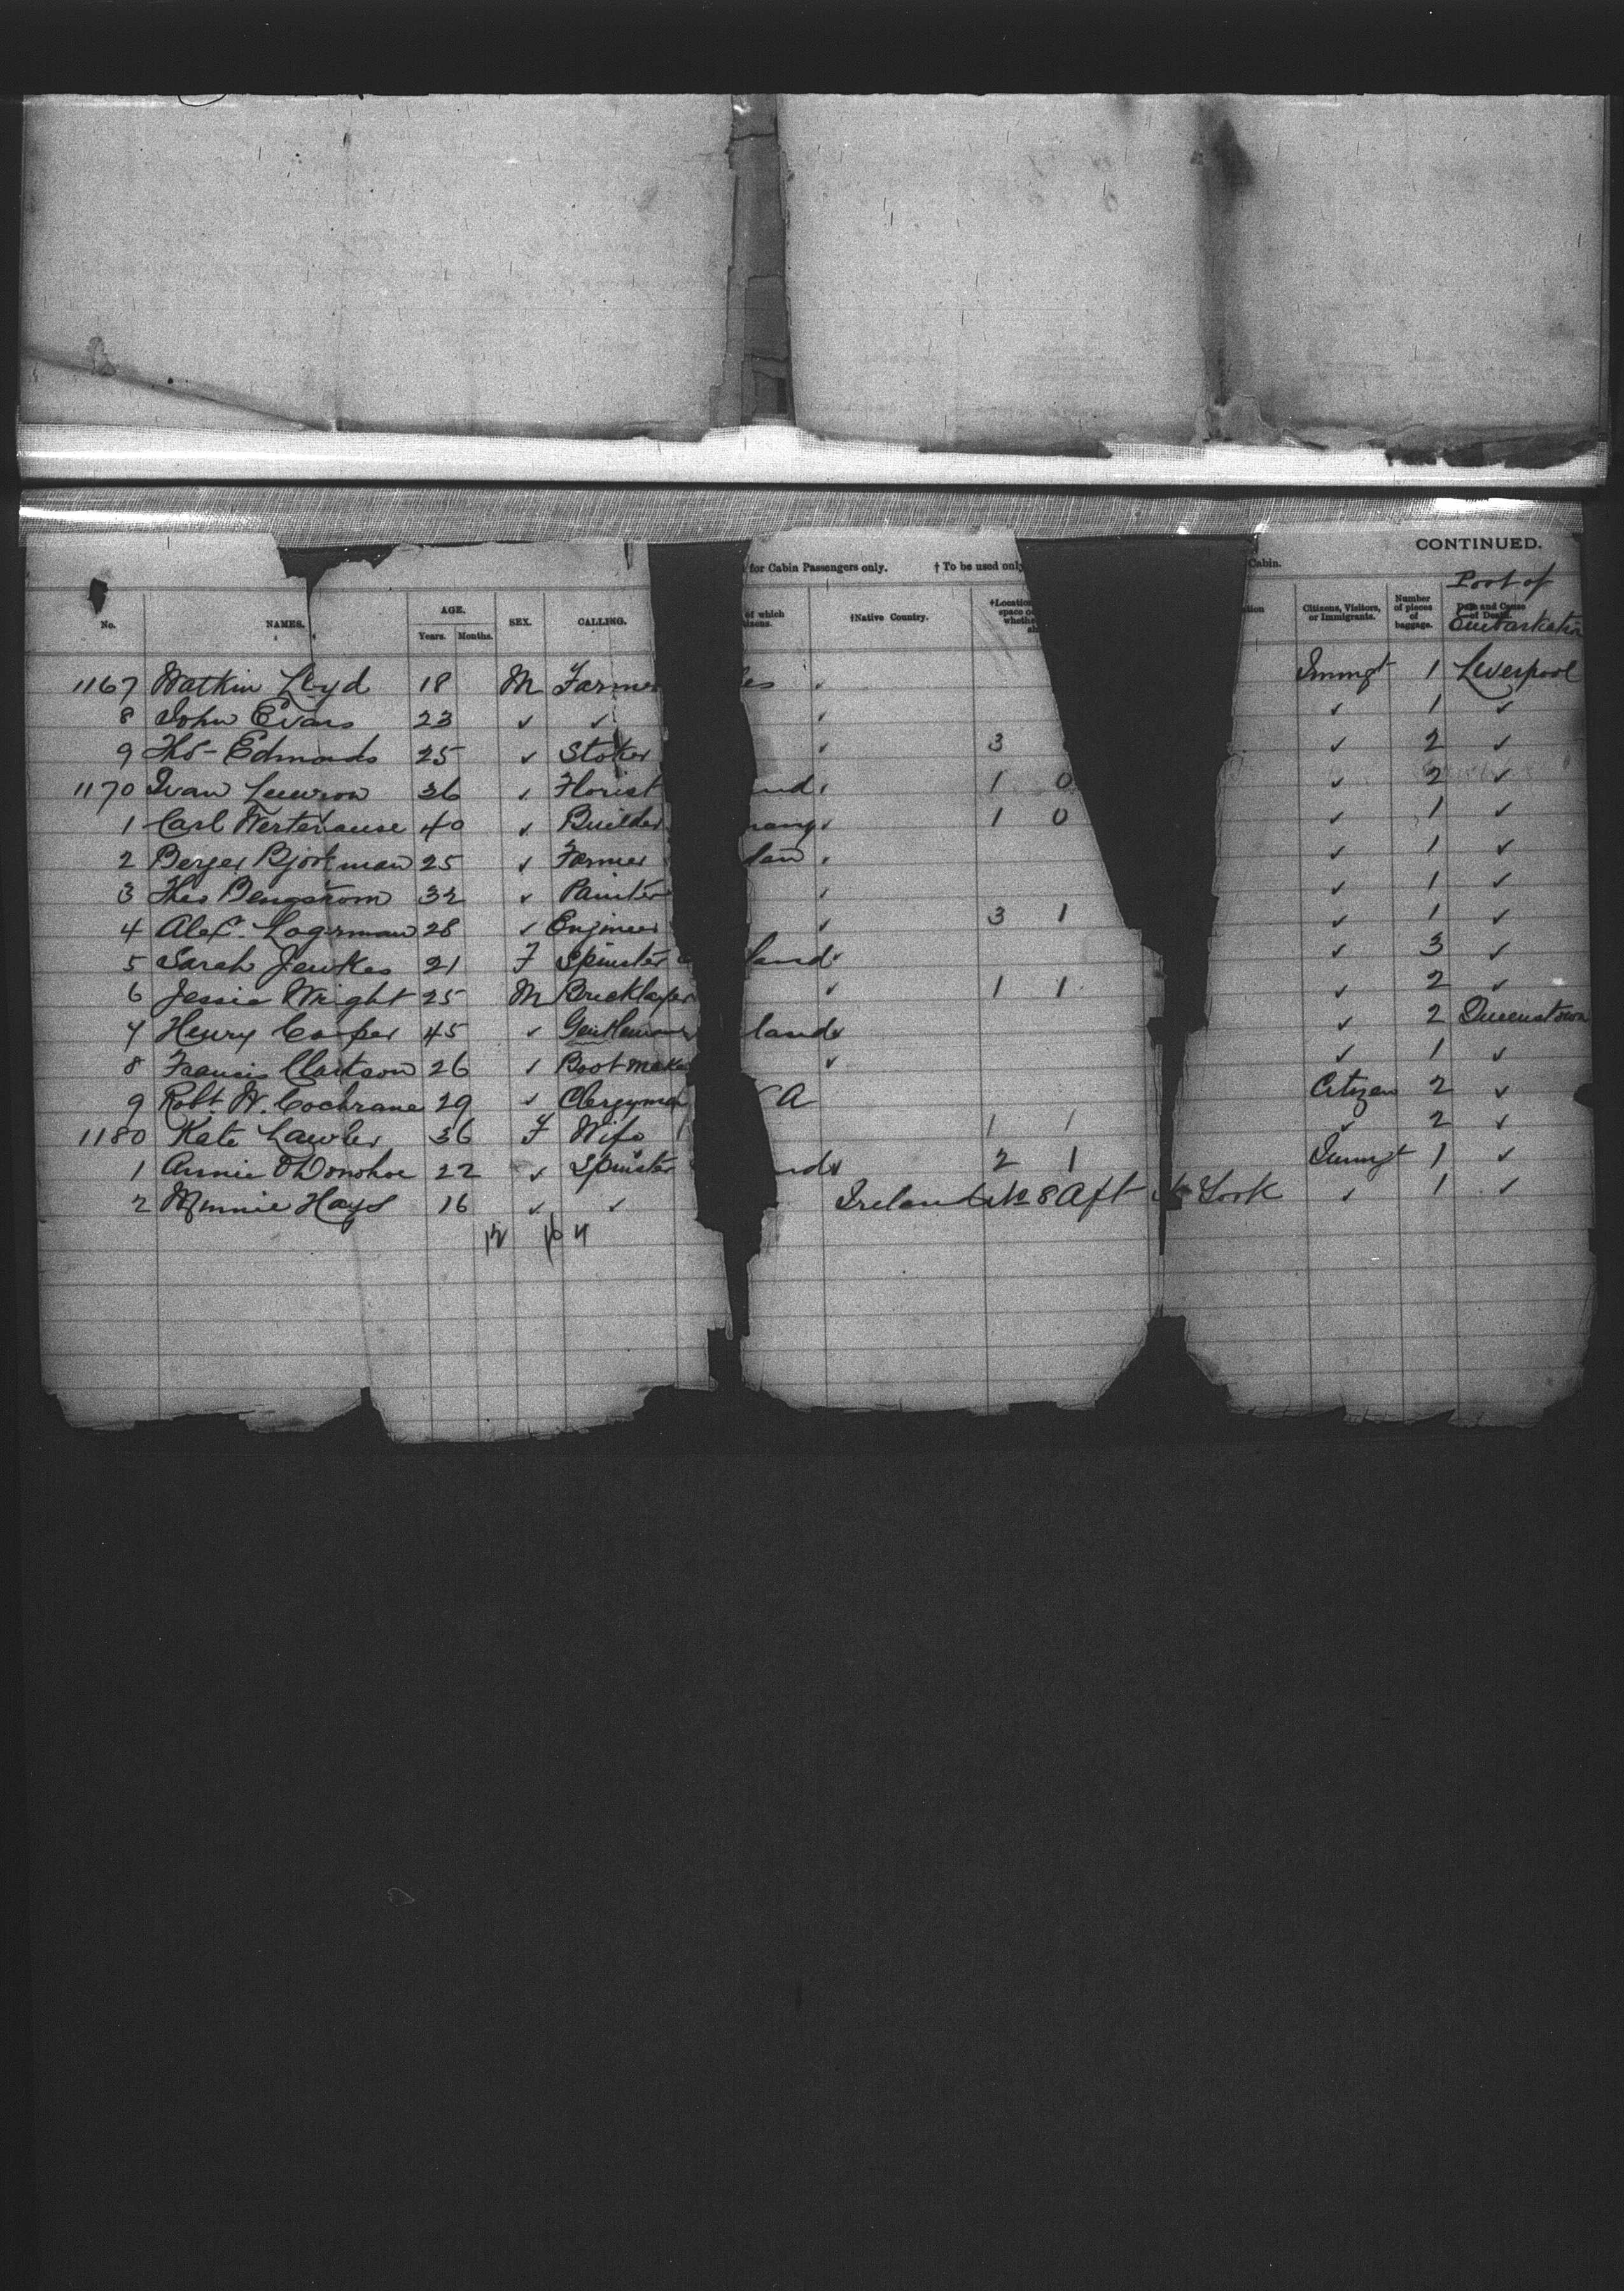 CONTINUED.
for Cabin Passengers only. † To be used only Cabin.
Port of
No. NAMES. AGE. Years. Months. SEX. CALLING. of which izens. †Native Country. †Location space o whethe Citizens, Visitors, or Immigrants. Number of pieces of baggage. Date and Cause of Death.
Embarkation
1167 Watkin Lloyd 18 M Farmer es ✓ Immgt 1 Liverpool
8 John Evans 23 ✓ ✓ ✓ ✓ 1 ✓
9 Thos- Edmonds 25 ✓ Stoker ✓ 3 ✓ 2 ✓
1170 Ivan 36 ✓ Florist and ✓ 1 0 ✓ 2 ✓
1 Carl Westerhause 40 ✓ Builder many ✓ 1 0 ✓ 1 ✓
2 Berger Bjorkman 25 ✓ Farmer ✓ ✓ 1 ✓
3 Thos Bengstrom 32 ✓ Painter ✓ ✓ 1 ✓
4 Alex. Logerman 28 ✓ Engineer ✓ 3 1 ✓ 1 ✓
5 Sarah Jewkes 21 F Spinster land ✓ ✓ 3 ✓
6 Jessie Wright 25 M Bricklayer ✓ 1 1 ✓ 2 ✓
7 Henry Cooper 45 ✓ Gentleman land ✓ ✓ 2 Queenstown
8 Francis Clarkson 26 ✓ Bootmake ✓ ✓ 1 ✓
9 Robt. W. Cochrane 29 ✓ Clergyman A Citizen 2 ✓
1180 Kate Lawler 36 F Wife 1 1 ✓ 2 ✓
1 Annie O'Donohoe 22 ✓ Spinster nd ✓ 2 1 Immgt 1 ✓
2 Minnie Hays 16 ✓ ✓ Ireland No 8 Aft N York ✓ 1 ✓